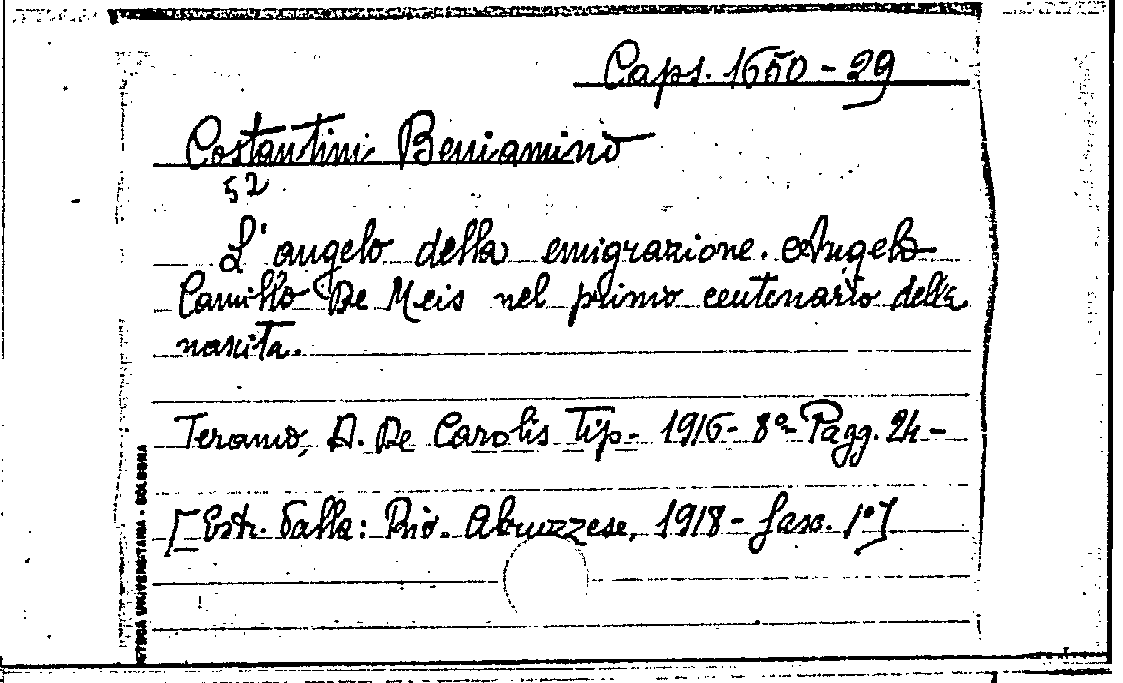 Caps. 1650 - 29
Costantini Beniamino
52
L'angelo della emigrazione. Angelo
Camillo De Meis nel primo centenario della
nascita.
Teramo, D. De Carolis Tip. - 1916 - 8° - Pagg. 24 -
[Estr. dalla: Riv. Abruzzese, 1918 - fasc. 1°]
UNIVERSITARIA - BOLOGNA